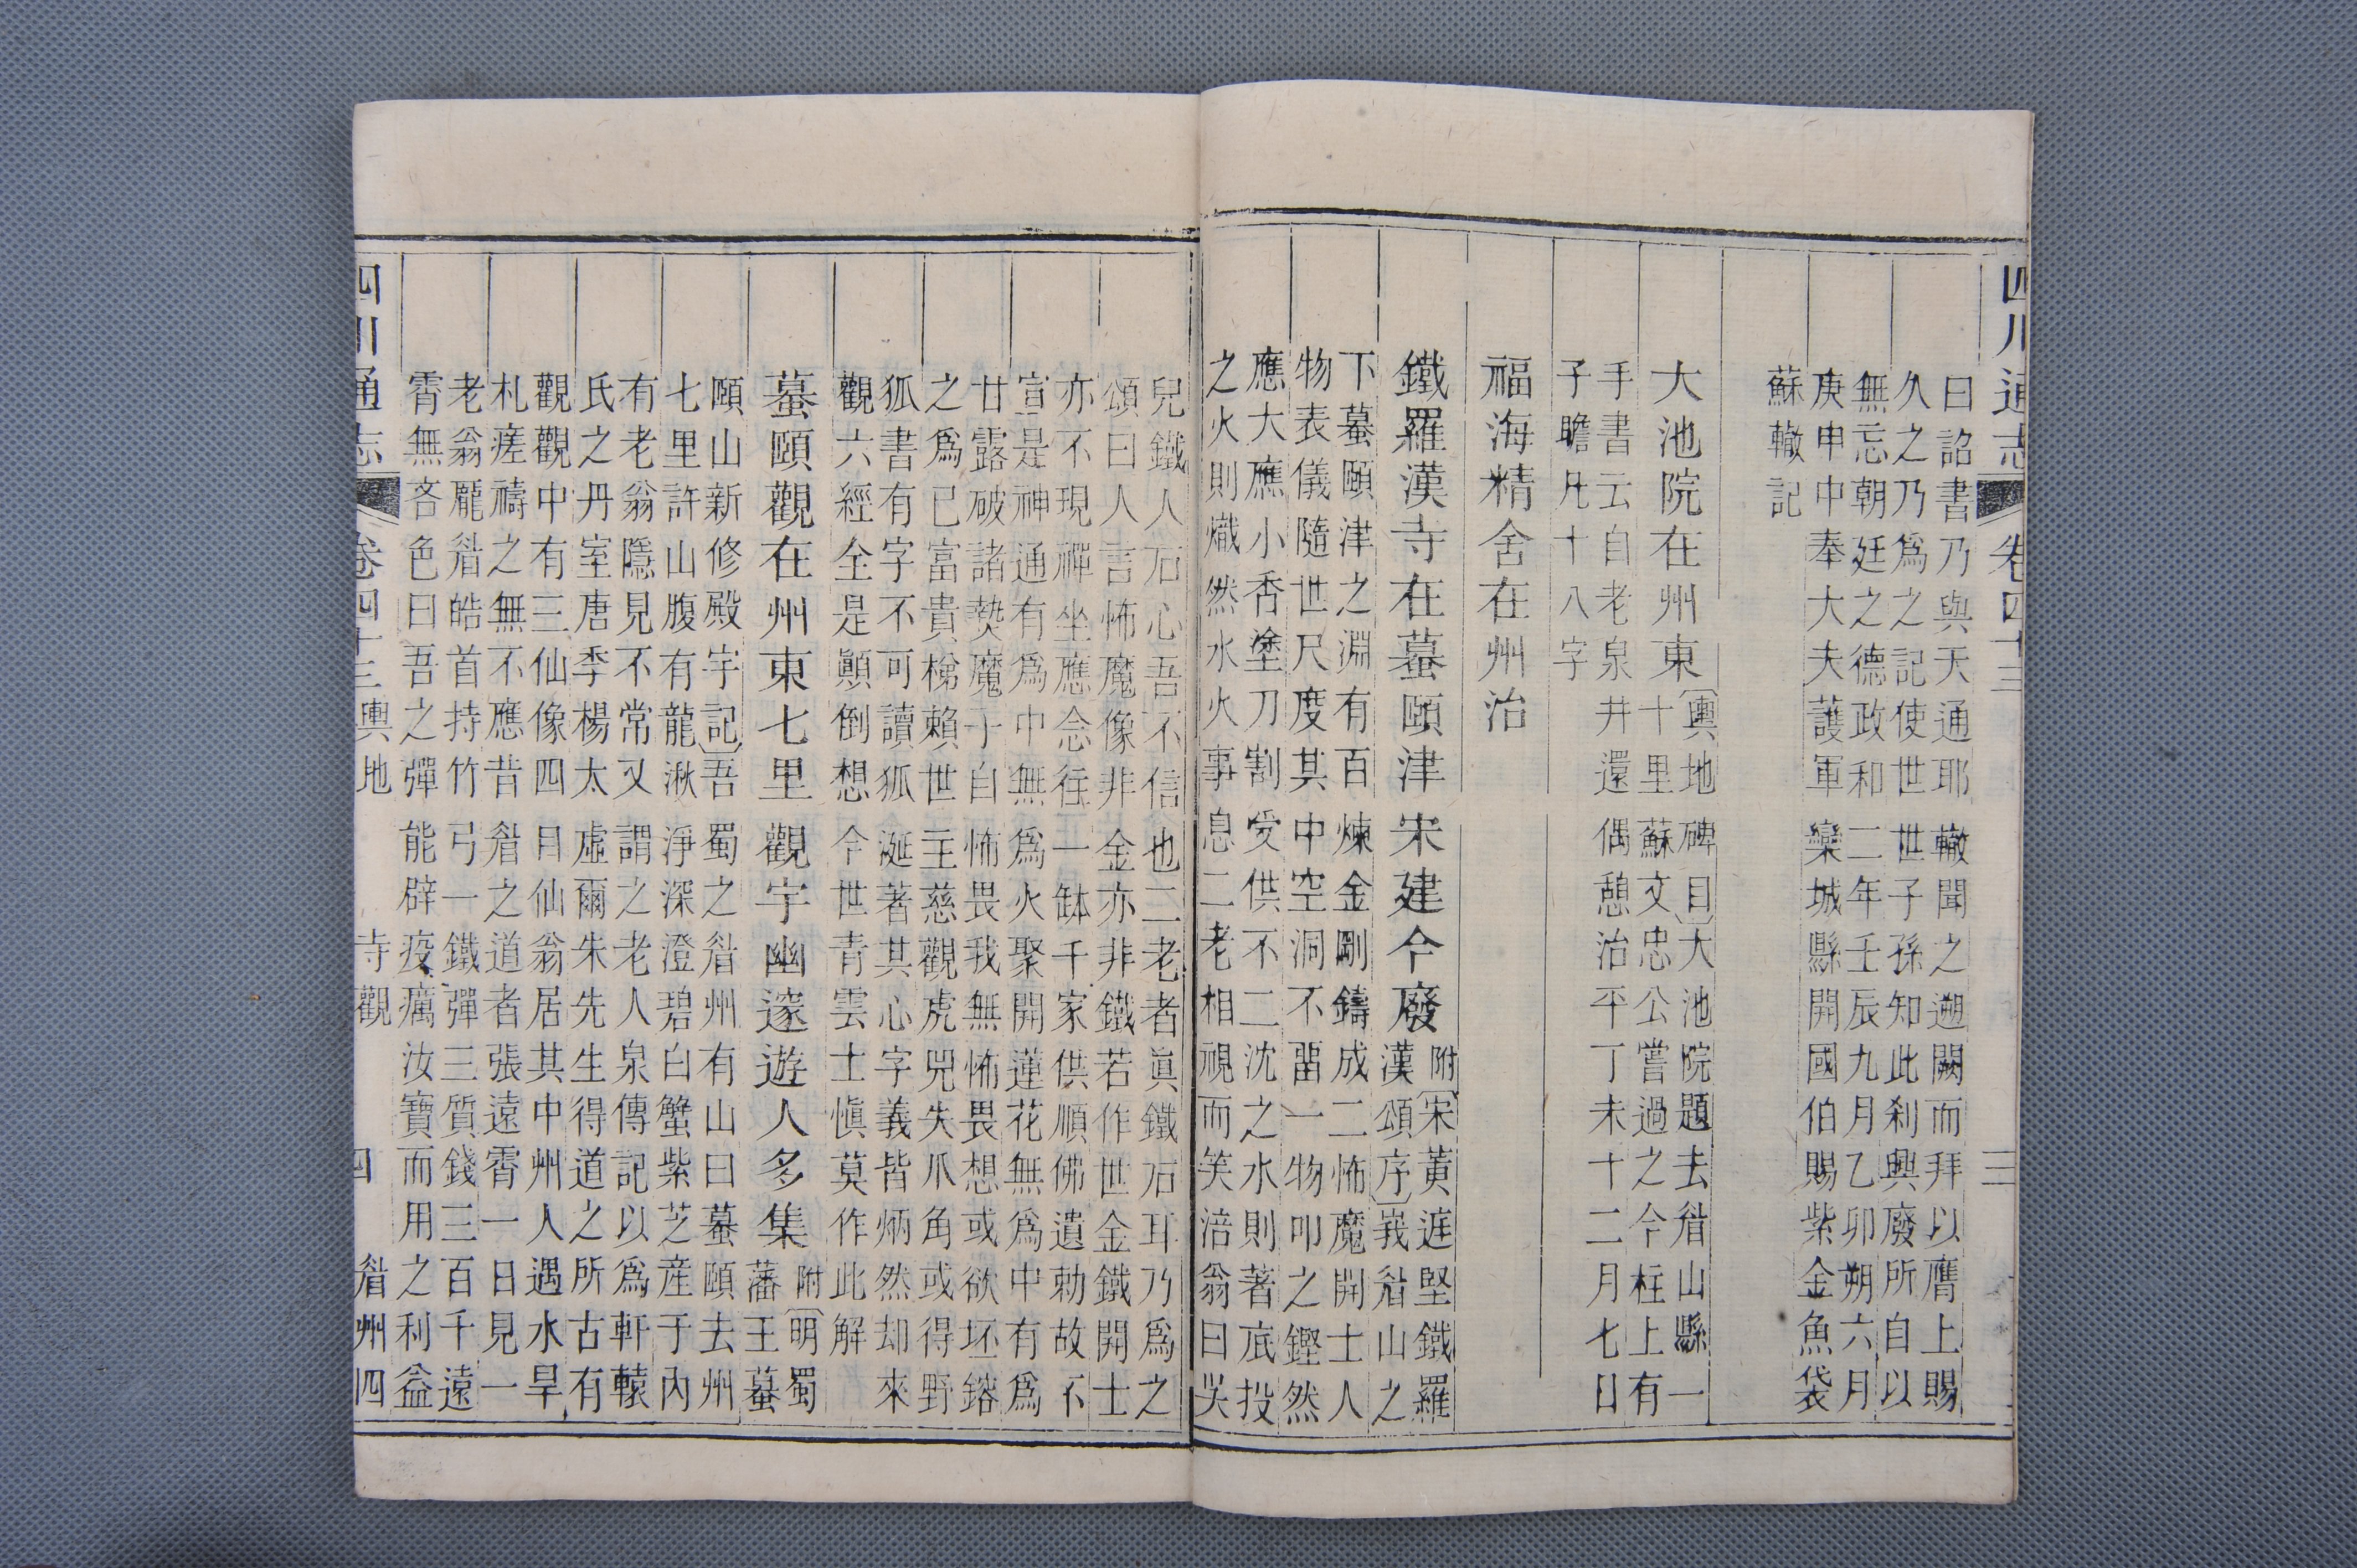 四川通志 卷四十三 三
曰詔書乃與天通耶轍聞之遡闕而拜以膺上賜
久之乃爲之記使世世子孫知此刹興廢所自以
無忘朝廷之德政和二年壬辰九月乙卯朔六月
庚申中奉大夫護軍欒城縣開國伯賜紫金魚袋
蘇轍記
大池院在州東
〔輿地碑目〕大池院題去眉山縣一
十里蘇文忠公嘗過之今柱上有
手書云自老泉井還偶憩治平丁未十二月七日
子瞻凡十八字
福海精舍在州治
鐵羅漢寺在蟇頤津宋建今廢
附〔宋黃庭堅鐵羅
漢頌序〕峩眉山之
下蟇頤津之淵有百煉金剛鑄成二怖魔開士人
物表儀隨世尺度其中空洞不畱一物叩之鏗然
應大應小香塗刀割受供不二沈之水則著底投
之火則熾然水火事息二老相視而笑涪翁曰笑
兒鐵人石心吾不信也二老者眞鐵石耳乃爲之
頌曰人言怖魔像非金亦非鐵若作世金鐵開士
亦不現禪坐應念往一缽千家供順佛遺勅故不
宣是神通有爲中無爲火聚開蓮花無爲中有爲
甘露破諸熱魔于自怖畏我無怖畏想或欲坯鎔
之爲已富貴梯賴世主慈觀虎兕失爪角或得野
狐書有字不可讀狐涎著其心字義皆炳然却來
觀六經全是顚倒想今世青雲士愼莫作此解
蟇頤觀在州東七里觀宇幽邃遊人多集
附〔明蜀
藩王蟇
頤山新修殿宇記〕吾蜀之眉州有山曰蟇頤去州
七里許山腹有龍湫淨深澄碧白蟹紫芝産于內
有老翁隱見不常又謂之老人泉傳記以爲軒轅
氏之丹室唐季楊太虛爾朱先生得道之所古有
觀觀中有三仙像四目仙翁居其中州人遇水旱
札瘥禱之無不應昔眉之道者張遠霄一日見一
老翁龎眉皓首持竹弓一鐵彈三質錢三百千遠
霄無吝色曰吾之彈能辟疫癘汝寶而用之利益
四川通志 卷四十三 輿地 寺觀 四 眉州 四